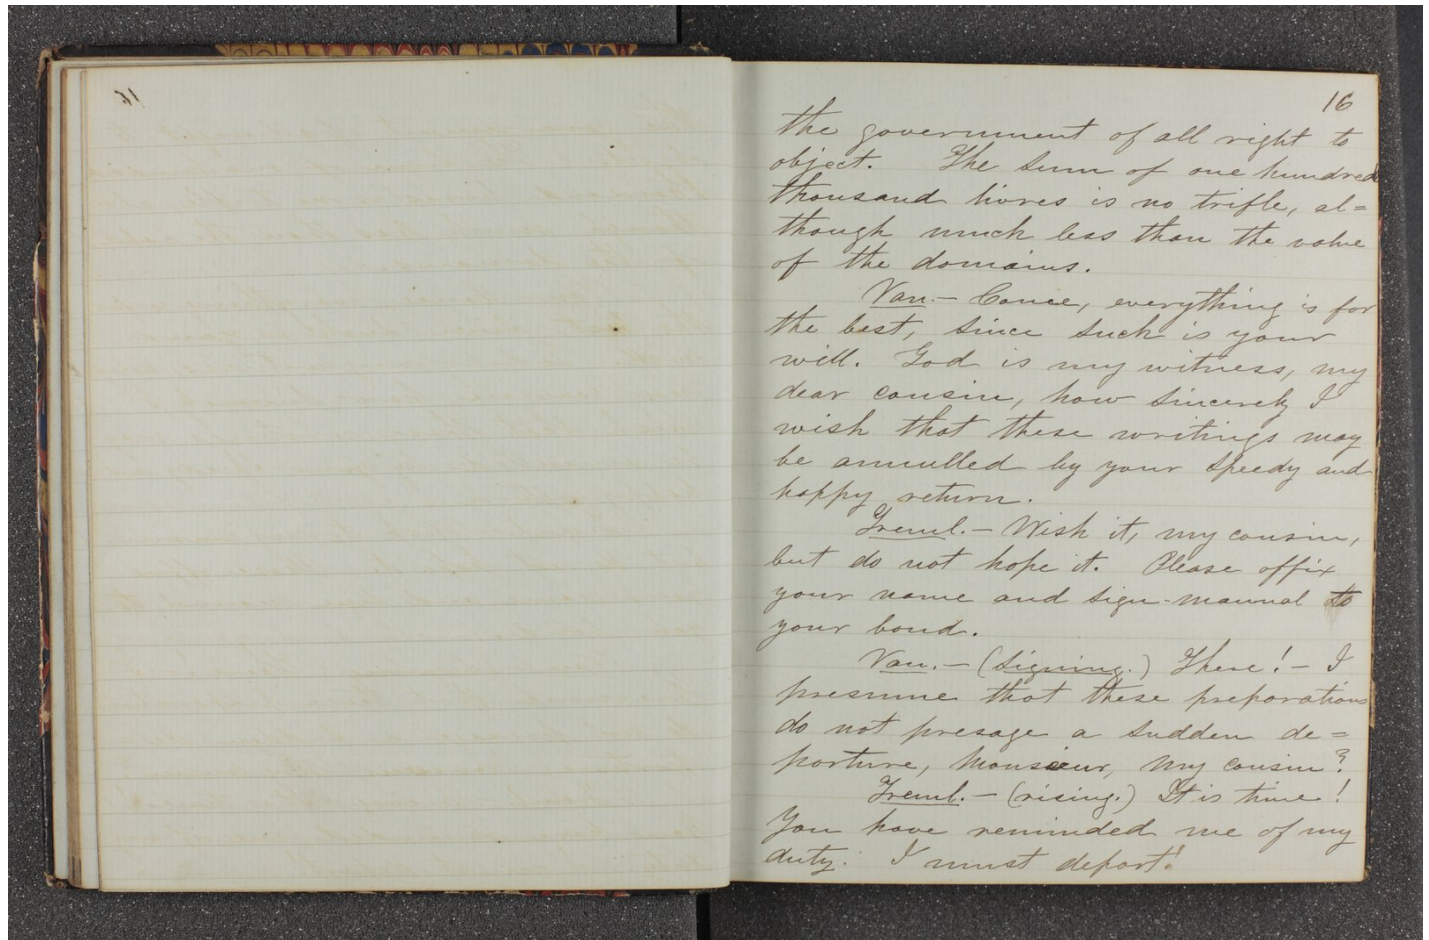 16
the government of all right to
object. The sum of one hundred
thousand livres is no trifle, al=
though much less than the value
of the domains.
Van.— Come, everything is for
the best, since such is your
will. God is my witness, my
dear cousin, how sincerely I
wish that these writings may
be annulled by your speedy and
happy return.
Treml.— Wish it, my cousin,
but do not hope it. Please affix
your name and sign-manual to
your bond.
Van.— (Signing.) There!— I
presume that these preparations
do not presage a sudden de=
parture, Monsieur, my cousin?
Treml.— (rising.) It is time!
You have reminded me of my
duty. I must depart!